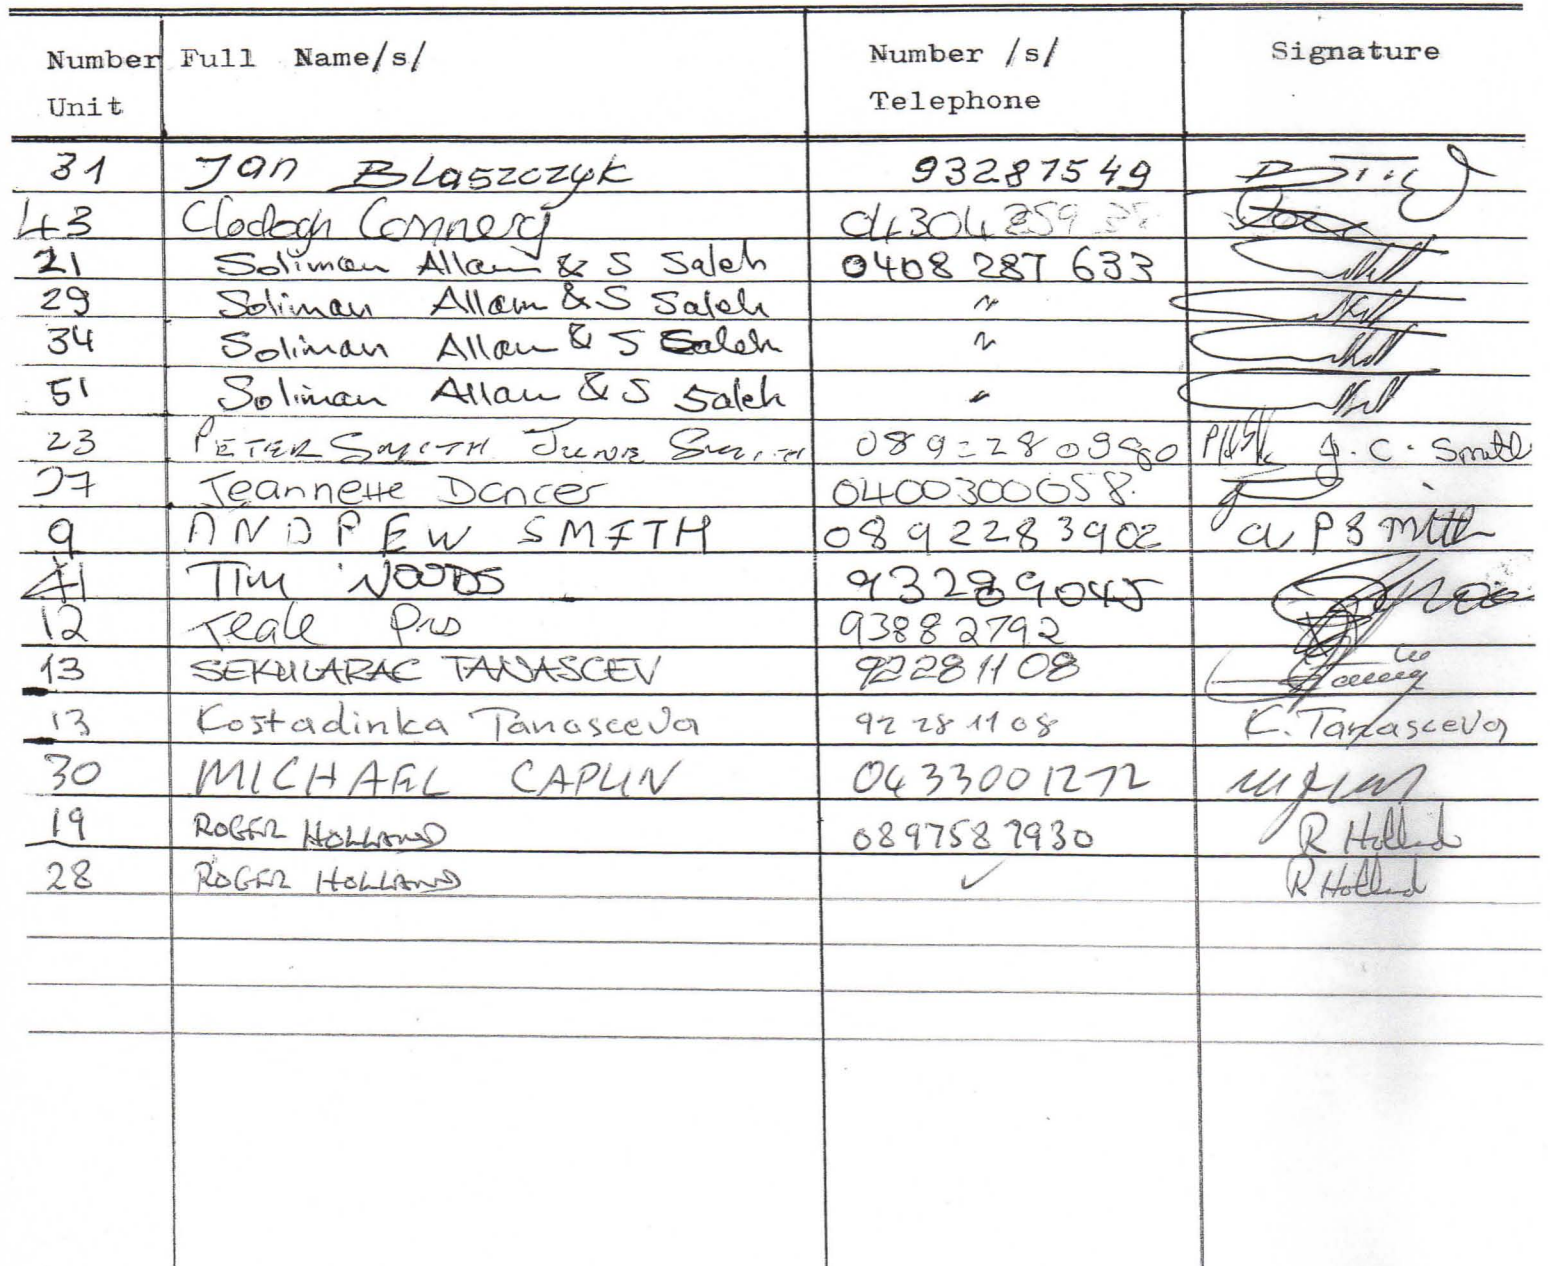 Number Full Name/s/ Number /s/ Signature
Unit Telephone
31 Jan Blaszczyk 93287549
43 Clodagh Connery 04304
21 Soliman Allam & S Saleh 0408 287 633
29 Soliman Allam & S Saleh "
34 Soliman Allam & S Saleh "
51 Soliman Allam & S Saleh "
23 PETER SMITH JUNE SMITH J. C. Smith
27 Jeannette Dancer 0400300058
9 ANDREW SMITH 0892283902 a P Smith
41 TIM WOODS 93289045
12 Teale 93882792
13 SEKULARAC TANASCEV 92281108
13 Kostadinka Tanasceva 92281108 K. Tanasceva
30 MICHAEL CAPLIN 0433001272
19 ROGER HOLLAND 0897587930 R Holland
28 ROGER HOLLAND ✓ R Holland